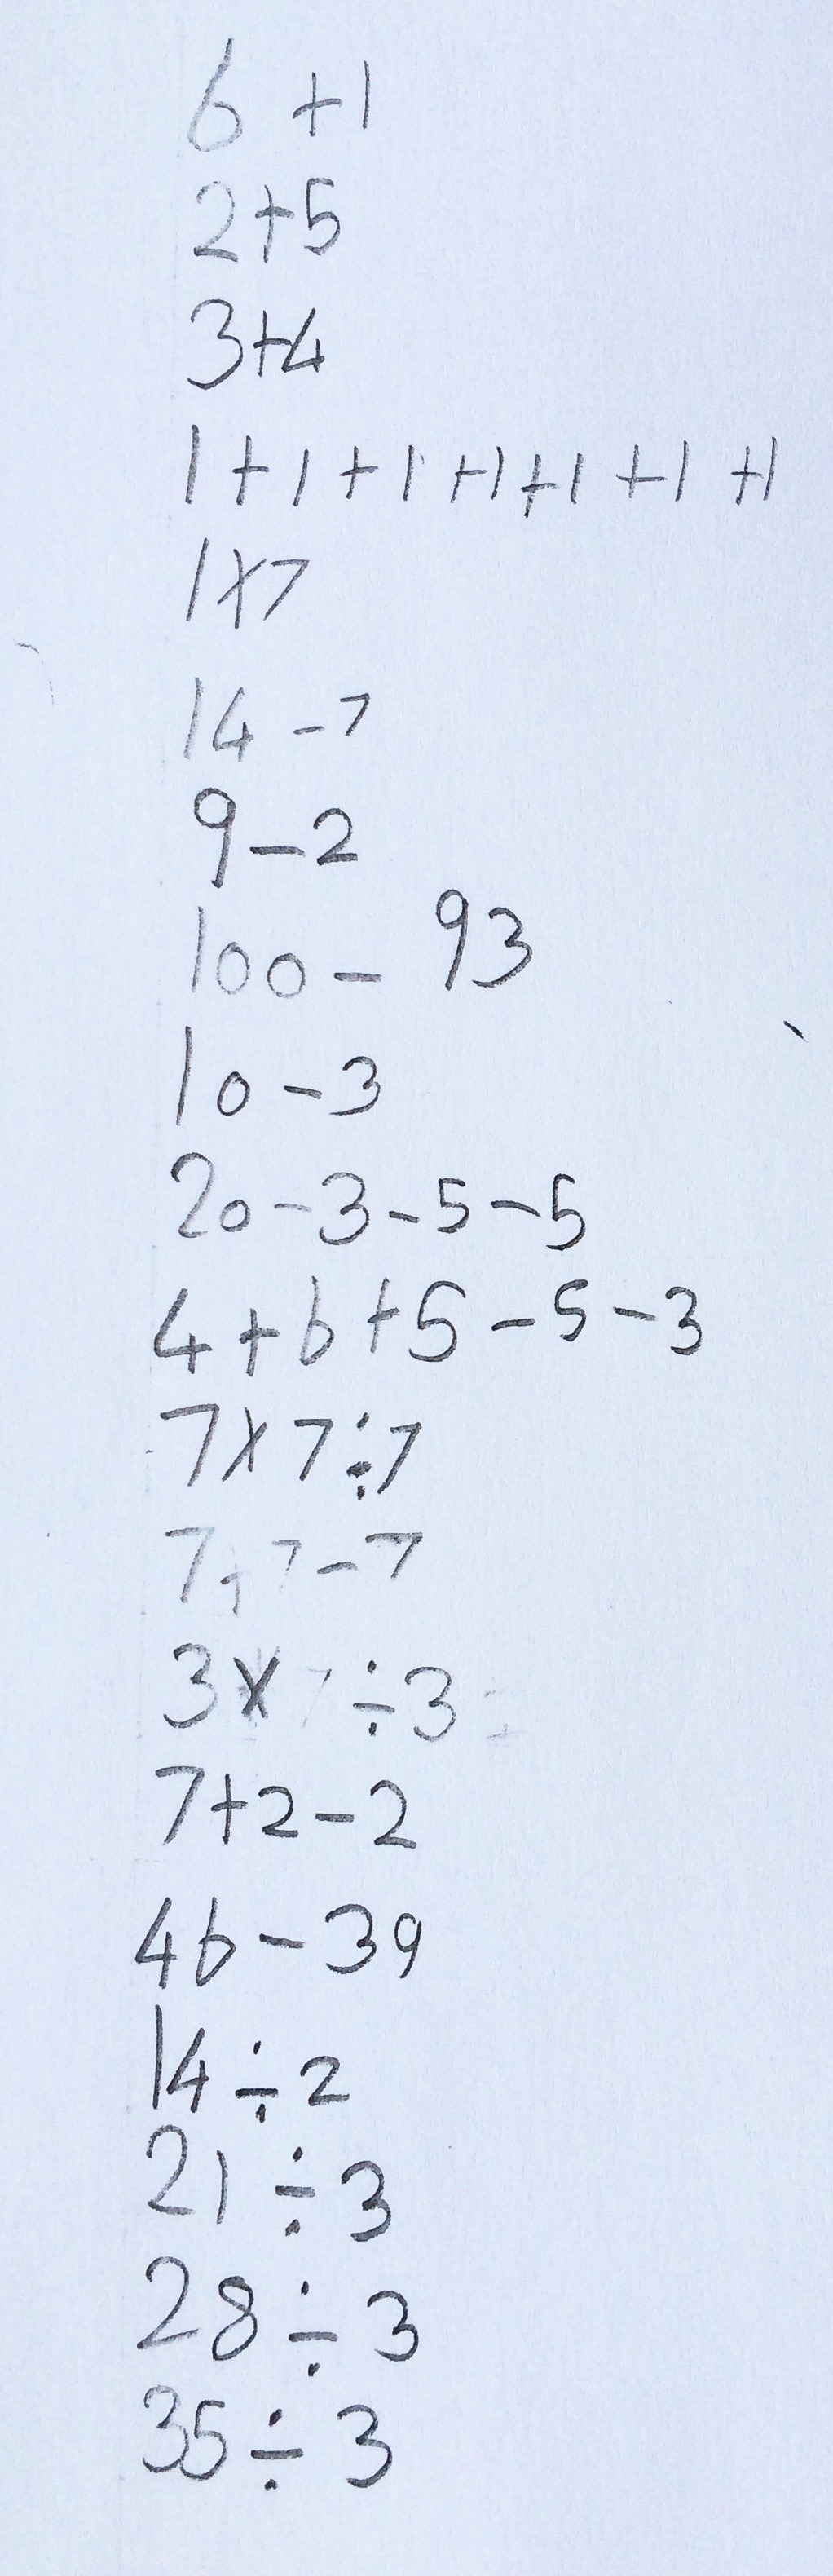 6 + 1
2 + 5
3 + 4
1 + 1 + 1 + 1 + 1 + 1 + 1
1 × 7
14 - 7
9 - 2
100 - 93
10 - 3
20 - 3 - 5 - 5
4 + 6 + 5 - 5 - 3
7 × 7 ÷ 7
7 + 7 - 7
3 × 7 ÷ 3
7 + 2 - 2
46 - 39
14 ÷ 2
21 ÷ 3
28 ÷ 3
35 ÷ 3